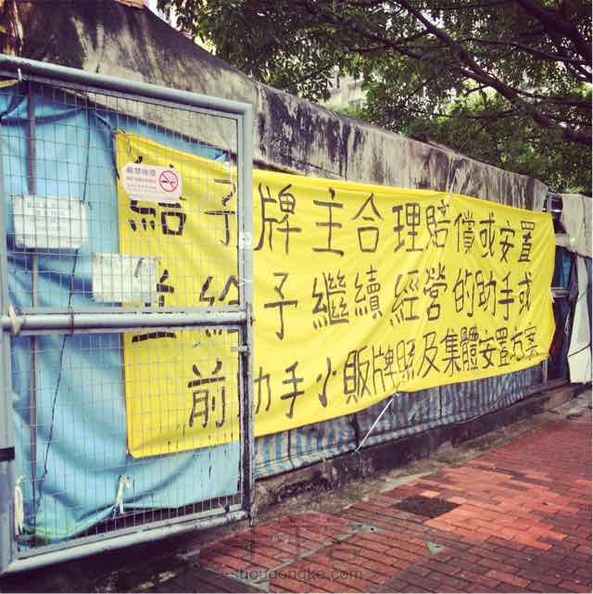 給予牌主合理賠償或安置
並給予繼續經營的助手或
前助手小販牌照及集體安置方案
嚴禁吸煙
NO SMOKING
shougongke.com